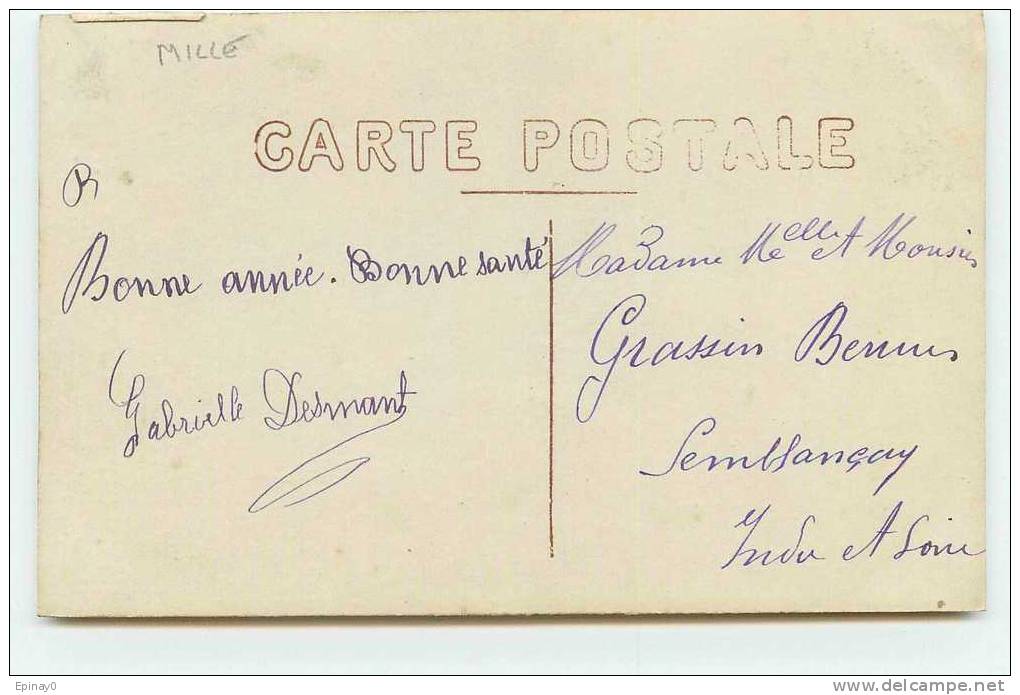 MILLE
CARTE POSTALE
R
Bonne année. Bonne santé
Gabrielle Desmant
Madame Melle et Monsieur
Grassin Bernus
Semblançay
Indre et Loire
Epinay0
www.delcampe.net